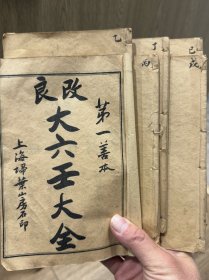 改良
第一善本
大六壬大全
上海埽葉山房石印
乙
丙
丁
戊
己